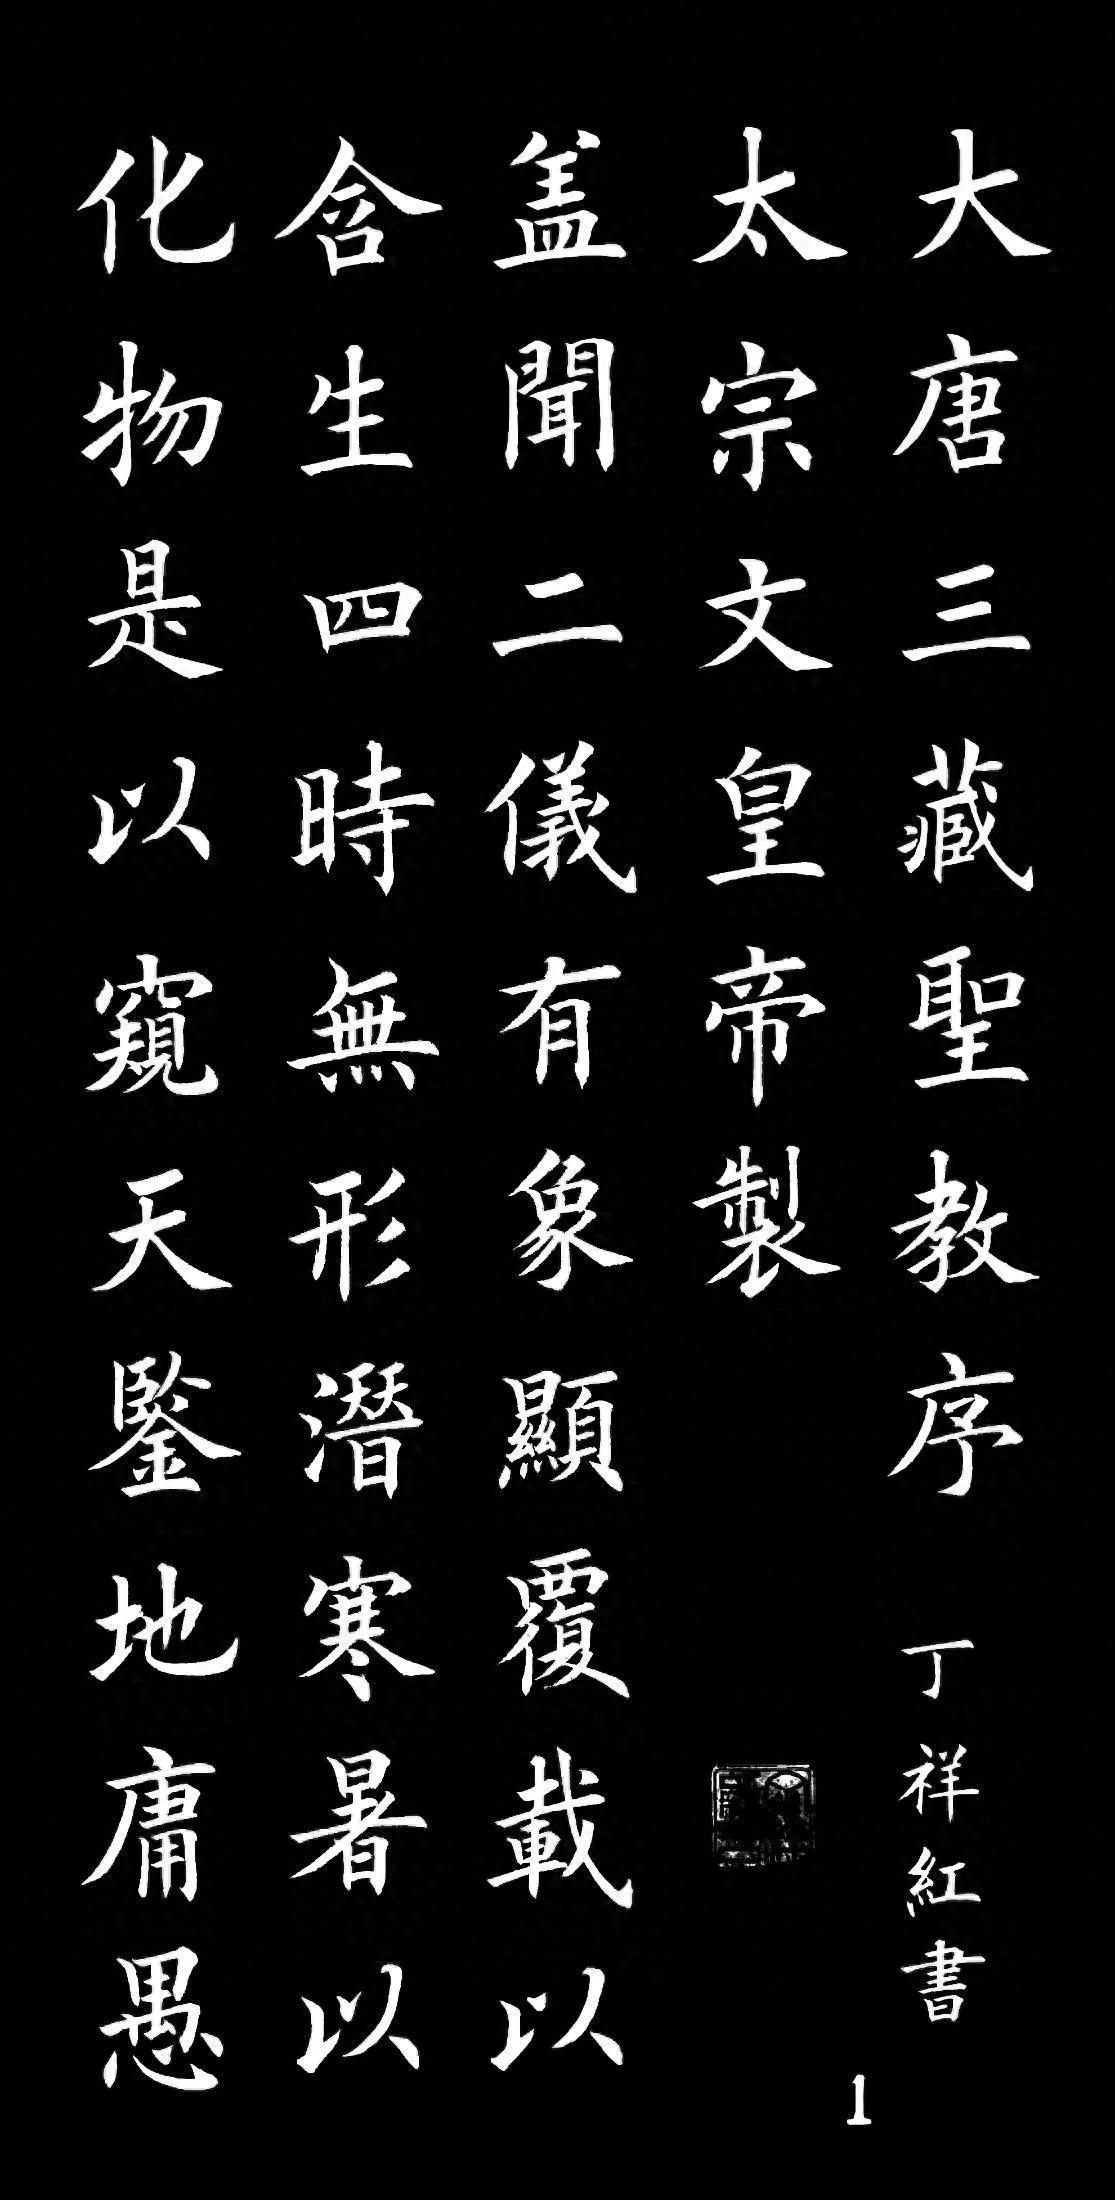 大唐三藏聖教序 丁祥紅書
太宗文皇帝製
盖聞二儀有象顯覆載以
含生四時無形潛寒暑以
化物是以窺天鑒地庸愚
1